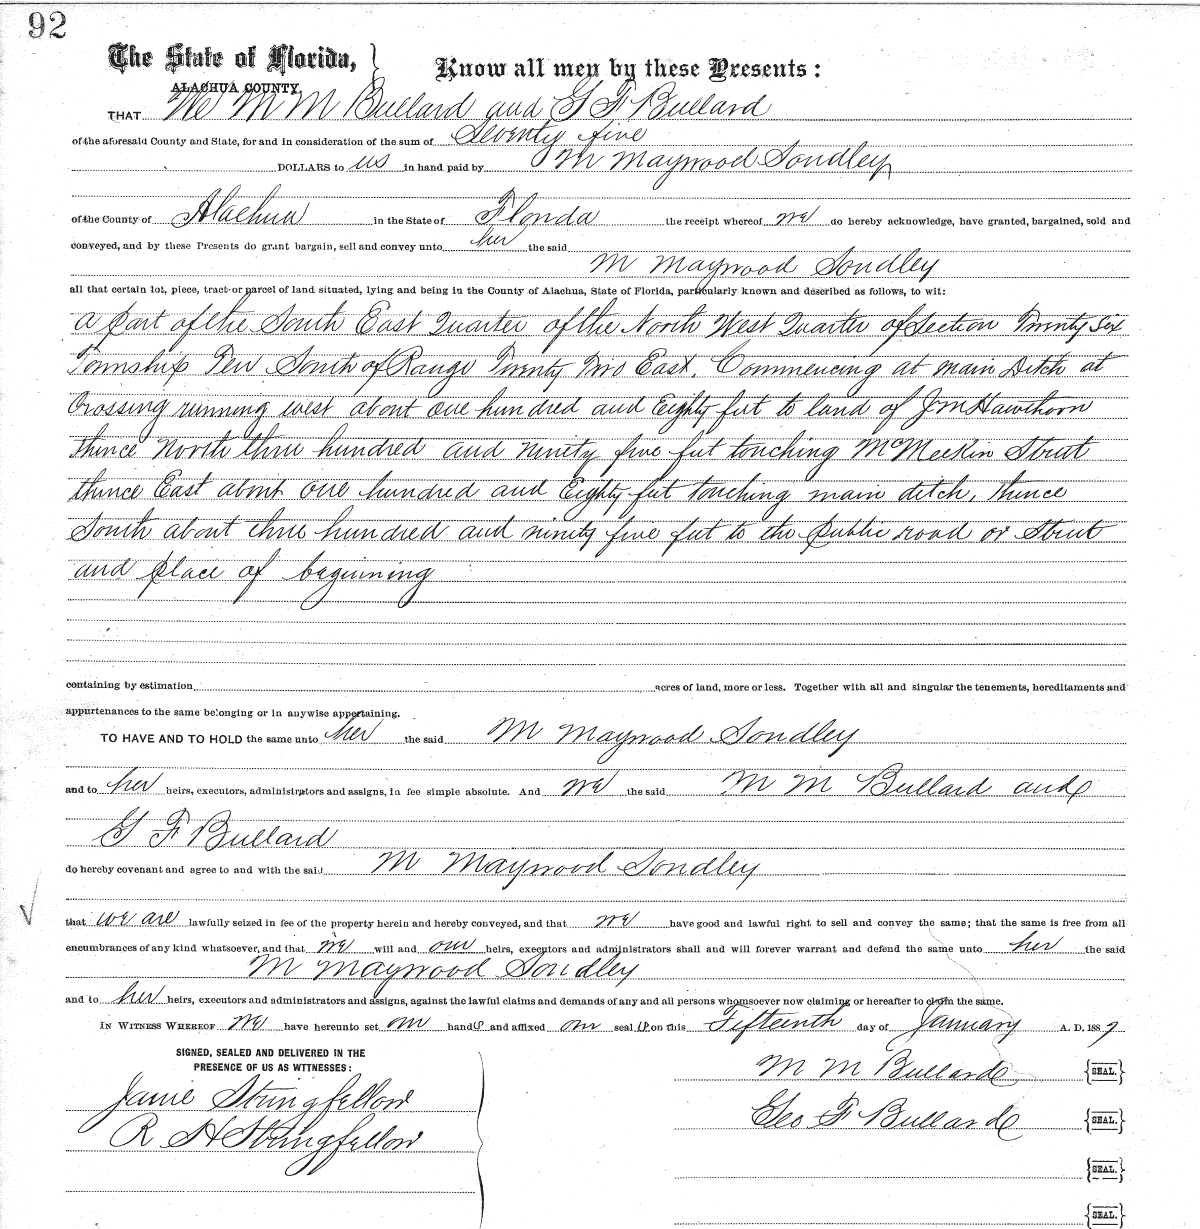 92
The State of Florida, } Know all men by these Presents:
ALACHUA COUNTY.
THAT We M M Bullard and G F Bullard
of the aforesaid County and State, for and in consideration of the sum of Seventy five
DOLLARS to us in hand paid by M Maywood Sondley
of the County of Alachua in the State of Florida the receipt whereof we do hereby acknowledge, have granted, bargained, sold and
conveyed, and by these Presents do grant bargain, sell and convey unto her the said
M Maywood Sondley
all that certain lot, piece, tract or parcel of land situated, lying and being in the County of Alachua, State of Florida, particularly known and described as follows, to wit:
a part of the South East Quarter of the North West Quarter of Section Twenty Six
Township Ten South of Range Twenty Two East. Commencing at main Ditch at
Crossing running west about one hundred and Eighty feet to land of J M Hawthorn
thence North three hundred and ninety five feet touching McMeekin Street
thence East about one hundred and Eighty feet touching main ditch, thence
South about three hundred and ninety five feet to the public road or Street
and place of beginning
containing by estimation acres of land, more or less. Together with all and singular the tenements, hereditaments and
appurtenances to the same belonging or in anywise appertaining.
TO HAVE AND TO HOLD the same unto her the said M Maywood Sondley
and to her heirs, executors, administrators and assigns, in fee simple absolute. And we the said M M Bullard and
G F Bullard
do hereby covenant and agree to and with the said M Maywood Sondley
that we are lawfully seized in fee of the property herein and hereby conveyed, and that we have good and lawful right to sell and convey the same; that the same is free from all
encumbrances of any kind whatsoever, and that we will and our heirs, executors and administrators shall and will forever warrant and defend the same unto her the said
M Maywood Sondley
and to her heirs, executors and administrators and assigns, against the lawful claims and demands of any and all persons whomsoever now claiming or hereafter to claim the same.
IN WITNESS WHEREOF we have hereunto set our hands and affixed our seals on this Fifteenth day of January A. D. 1887
SIGNED, SEALED AND DELIVERED IN THE
PRESENCE OF US AS WITNESSES:
M M Bullard {SEAL.}
Janie Stringfellow
Geo F Bullard {SEAL.}
R H Stringfellow
{SEAL.}
{SEAL.}